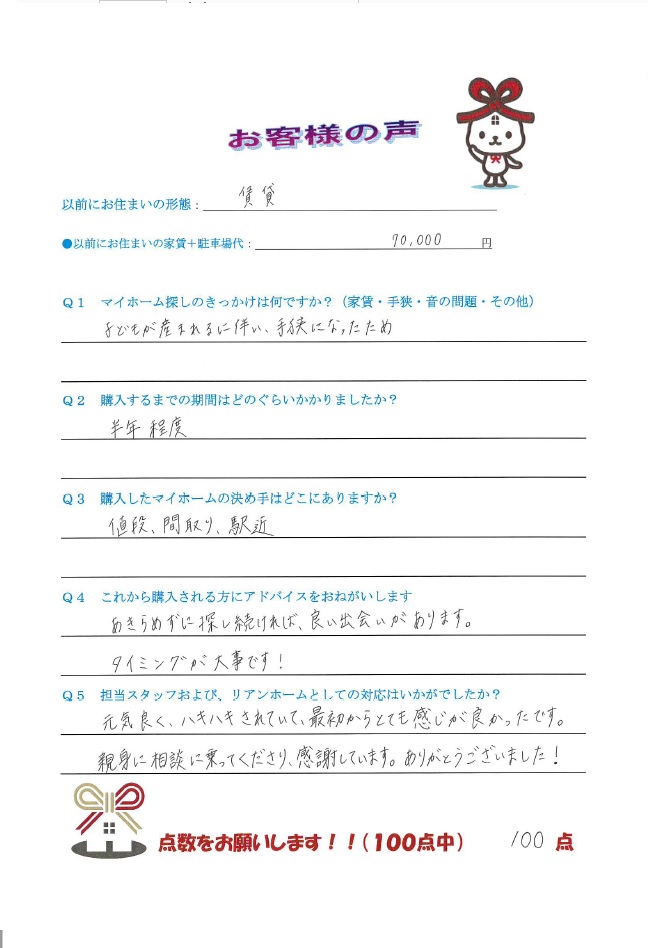 お客様の声
以前にお住まいの形態： 賃貸
●以前にお住まいの家賃＋駐車場代： 70,000 円
Ｑ１　マイホーム探しのきっかけは何ですか？（家賃・手狭・音の問題・その他）
子どもが産まれるに伴い、手狭になったため
Ｑ２　購入するまでの期間はどのぐらいかかりましたか？
半年程度
Ｑ３　購入したマイホームの決め手はどこにありますか？
値段、間取り、駅近
Ｑ４　これから購入される方にアドバイスをおねがいします
あきらめずに探し続ければ、良い出会いがあります。
タイミングが大事です！
Ｑ５　担当スタッフおよび、リアンホームとしての対応はいかがでしたか？
元気良く、ハキハキされていて、最初からとても感じが良かったです。
親身に相談に乗ってくださり、感謝しています。ありがとうございました！
点数をお願いします！！（１００点中） 100 点